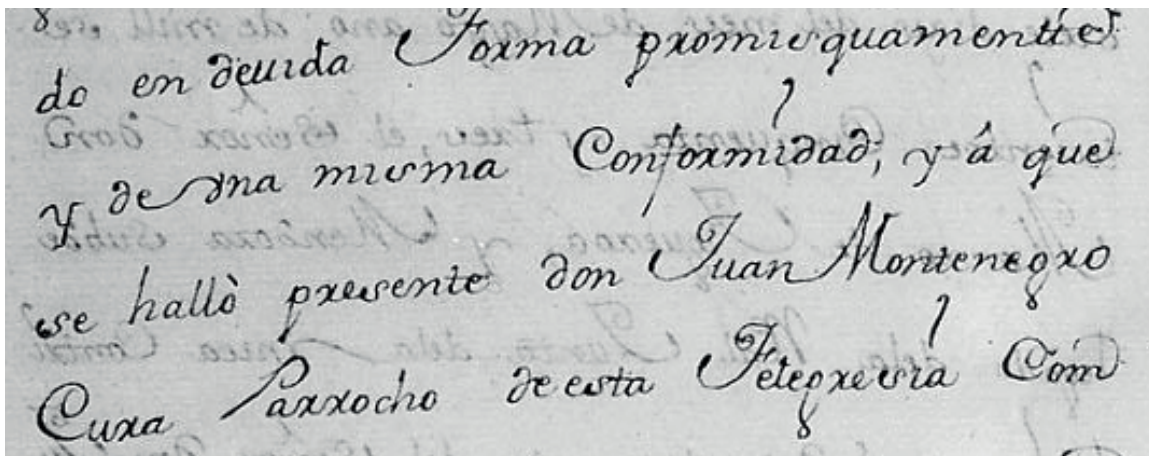 do en deuida Forma promisquamente
y de una misma Conformidad, y â que
se hallò presente don Juan Montenegro
Cura Parrocho de esta Felegresia Com